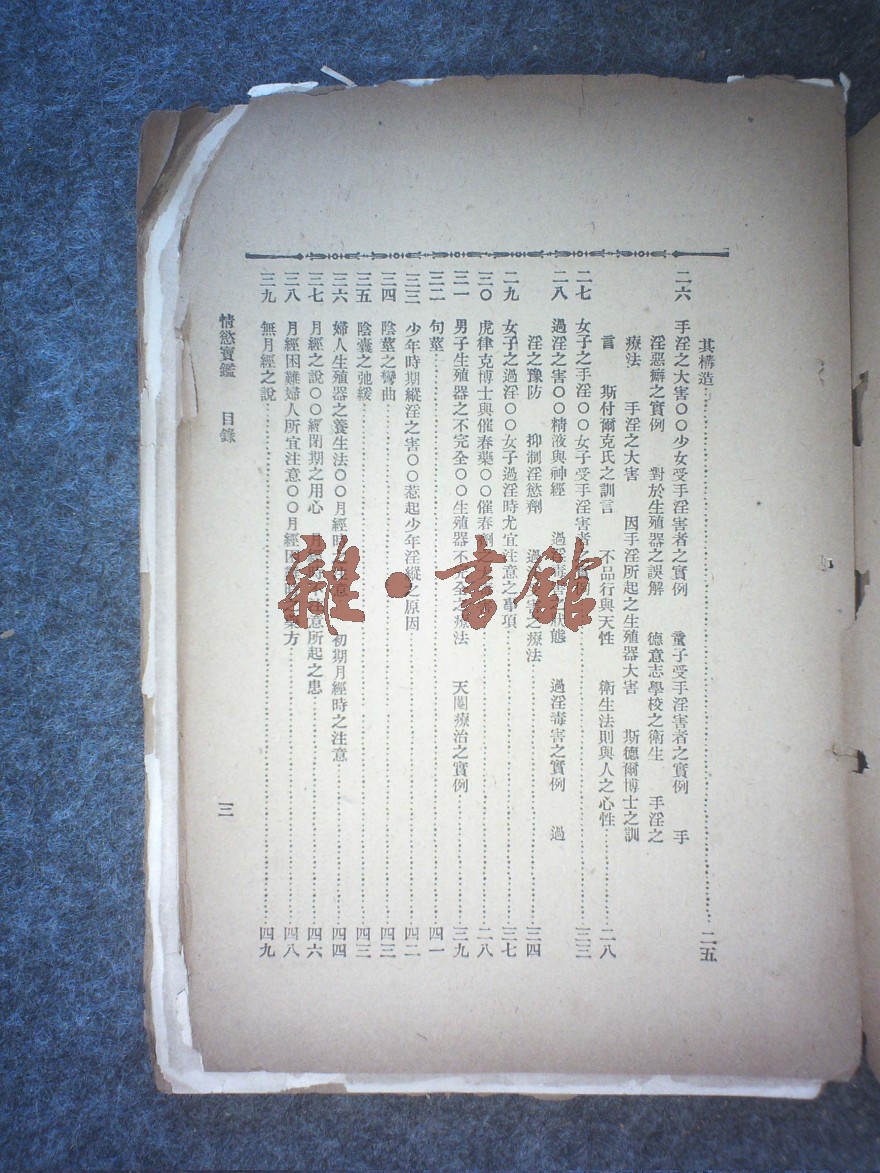 其構造……二五
二六 手淫之大害〇〇少女受手淫害者之實例 童子受手淫害者之實例 手
淫惡癖之實例 對於生殖器之誤解 德意志學校之衞生 手淫之
療法 手淫之大害 因手淫所起之生殖器大害 斯德爾博士之訓
言 斯付爾克氏之訓言 不品行與天性 衞生法則與人之心性……二八
二七 女子之手淫〇〇女子受手淫害者……三三
二八 過淫之害〇〇精液與神經 過淫毒害之狀態 過淫毒害之實例 過
淫之豫防 抑制淫慾劑 過淫之療法……三四
二九 女子之過淫〇〇女子過淫時尤宜注意之事項……三七
三〇 虎律克博士與催春藥〇〇催春劑……二八
三一 男子生殖器之不完全〇〇生殖器不完全之療法 天閹療治之實例……三九
三二 句莖……四一
三三 少年時期縱淫之害〇〇惹起少年淫縱之原因……四二
三四 陰莖之彎曲……四三
三五 陰囊之弛緩……四三
三六 婦人生殖器之養生法〇〇月經時 初期月經時之注意……四四
三七 月經之說〇〇經閉期之用心 月 注意所起之患……四六
三八 月經困難婦人所宜注意〇〇月經困 藥方……四八
三九 無月經之說……四九
情慾寶鑑 目錄 三
雜·書館